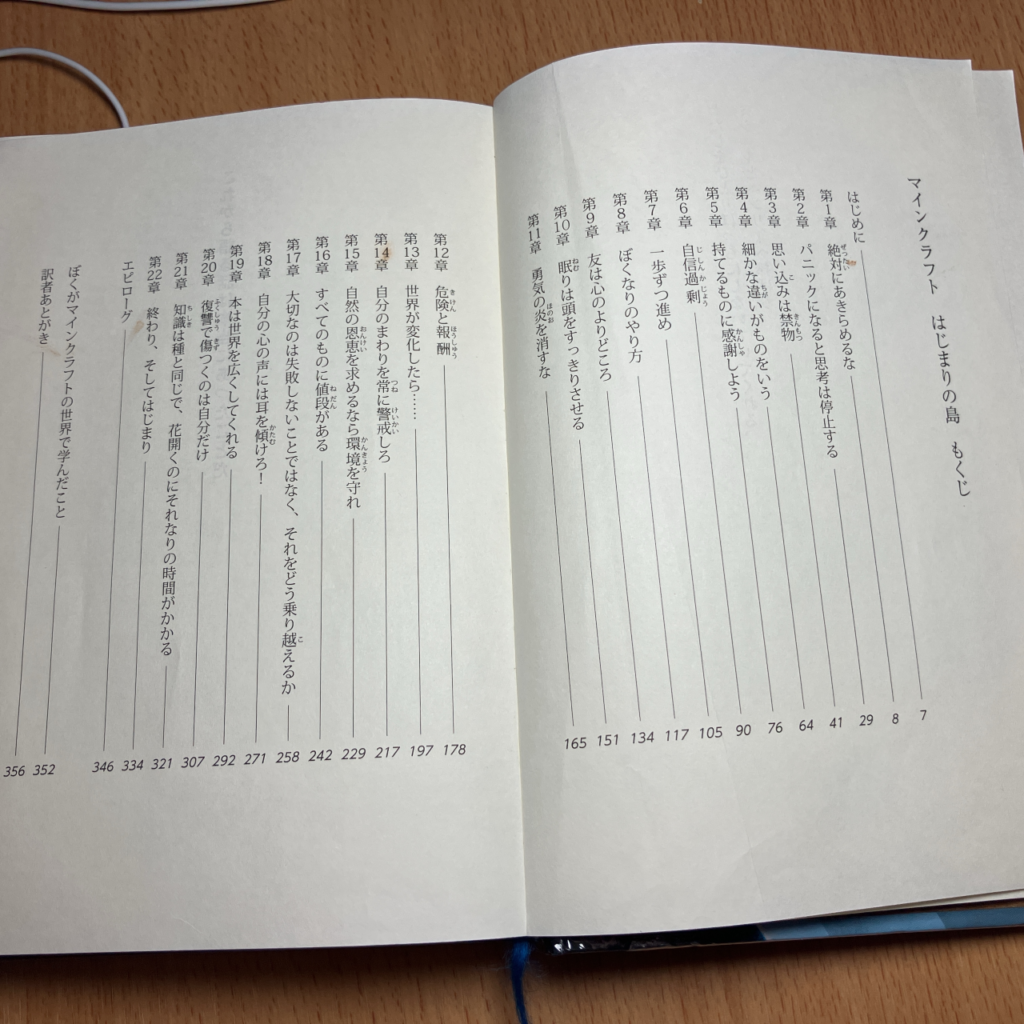 マインクラフト はじまりの島 もくじ
はじめに 7
第1章 絶対にあきらめるな 8
第2章 パニックになると思考は停止する 29
第3章 思い込みは禁物 41
第4章 細かな違いがものをいう 64
第5章 持てるものに感謝しよう 76
第6章 自信過剰 90
第7章 一歩ずつ進め 105
第8章 ぼくなりのやり方 117
第9章 友は心のよりどころ 134
第10章 眠りは頭をすっきりさせる 151
第11章 勇気の炎を消すな 165
第12章 危険と報酬 178
第13章 世界が変化したら…… 197
第14章 自分のまわりを常に警戒しろ 217
第15章 自然の恩恵を求めるなら環境を守れ 229
第16章 すべてのものに値段がある 242
第17章 大切なのは失敗しないことではなく、それをどう乗り越えるか 258
第18章 自分の心の声には耳を傾けろ! 271
第19章 本は世界を広くしてくれる 292
第20章 復讐で傷つくのは自分だけ 307
第21章 知識は種と同じで、花開くのにそれなりの時間がかかる 321
第22章 終わり、そしてはじまり 334
エピローグ 346
ぼくがマインクラフトの世界で学んだこと 352
訳者あとがき 356